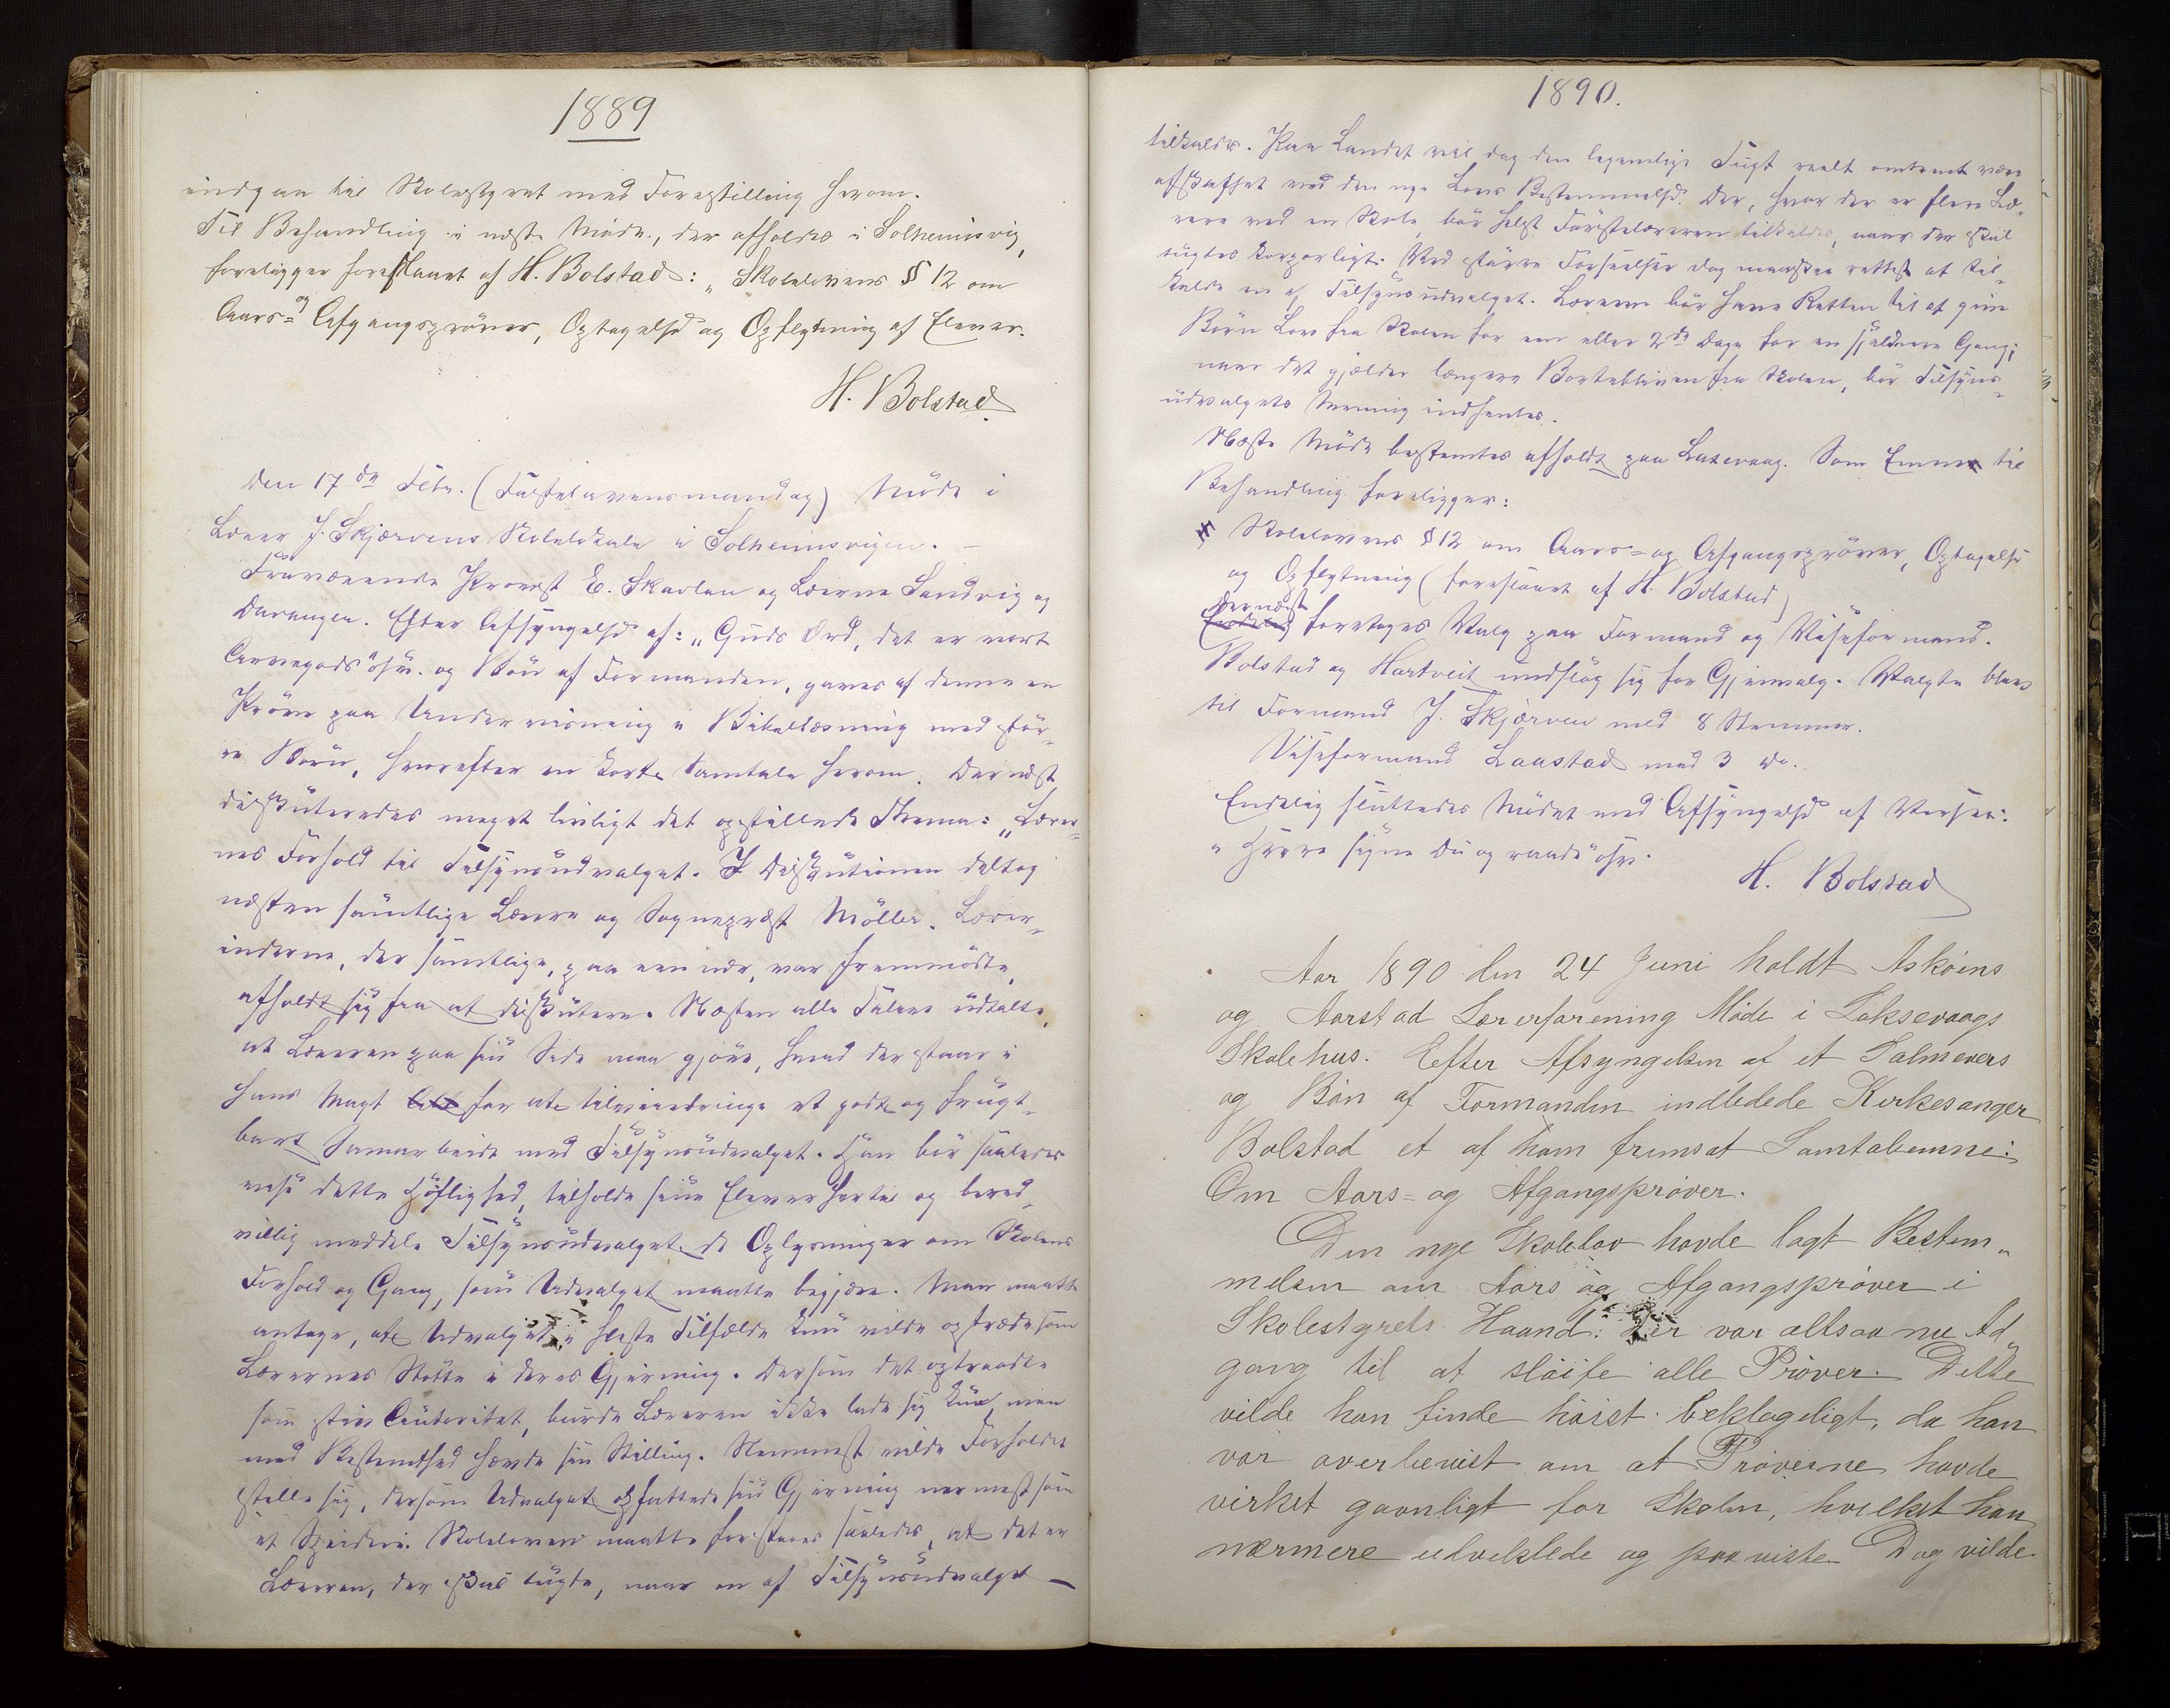 1889
indgaa til Skolestyret med Forestilling herom.
Til Behandling i næste Møde, der afholdes i Solheimsvig,
foreligger foreslaaet af H. Bolstad: „Skolelovens § 12 om
Aars- og Afgangsprøver, Optagelse og Opflytning af Elever.
H. Bolstad
Den 17de Febr. (Fastelavensmandag) Møde i
Lærer J. Skjærvens Skolelokale i Solheimsvigen. –
Fraværende Provst E. Skavlan og Lærerne Sandvig og
Davanger. Efter Afsyngelse af: „Guds Ord, det er vort
Arvegods" osv. og Bøn af Formanden, gaves af denne en
Prøve paa Undervisning i Bibellæsning med stør-
re Børn, hvorefter en kort Samtale herom. Dernæst
diskuteredes meget livligt det opstillede Thema: „Lærer-
nes Forhold til Tilsynsudvalget. I Diskutionen deltog
næsten samtlige Lærere og Sognepræst Møller. Lærer-
inderne, der samtlige, paa een nær, var fremmødte,
afholdt sig fra at diskutere. Næsten alle Talere udtalte,
at Læreren paa sin Side maa gjøre, hvad der staar i
hans Magt for at tilveiebringe et godt og frugt-
bart Samarbeide med Tilsynsudvalget. Han bør saaledes
vise dette Høflighed, tilholde sine Elever hertil og bered-
villig meddele Tilsynsudvalget de Oplysninger om Skolens
Forhold og Gang, som Udvalget maatte begjære. Man maatte
antage, at Udvalget i fleste Tilfælde kun vilde optræde som
Lærernes Støtte i deres Gjerning. Dersom det optraadte
som stiv Autoritet, burde Læreren ikke lade sig kue, men
med Bestemthed hævde sin Stilling. Slemmest vilde Forholdet
stille sig, dersom Udvalget opfattede sin Gjerning nærmest som
et Speideri. Skoleloven maatte forstaaes saaledes, at det er
Læreren, der skal tugte, naar en af Tilsynsudvalget –
1890.
tilkaldes. Paa Landet vil dog den legemlige Tugt reelt omtrent være
afskaffet ved den nye Lovs Bestemmelse. Der, hvor der er flere Læ-
rere ved en Skole, bør helst Førstelæreren tilkaldes, naar der skal
tugtes korporligt. Ved større Forseelser dog maaske rettest at til-
kalde en af Tilsynsudvalget. Læreren bør have Retten til at give
Børn Lov fra Skolen for een eller 2de Dage for en sjeldnere Gang;
naar det gjælder længere Borteblivelse fra Skolen, bør Tilsyns-
udvalgets Mening indhentes.
Næste Møde bestemtes afholdt paa Laxevaag. Som Emne til
Behandling foreligger:
Skolelovens § 12 om Aars- og Afgangsprøver, Optagelse
og Opflytning (foreslaaet af H. Bolstad)
Dernæst foretoges Valg paa Formand og Viseformand.
Bolstad og Hartveit undslog sig for Gjenvalg. Valgte blev
til Formand J. Skjærven med 8 Stemmer.
Viseformand Laastad med 3 do.
Endelig sluttedes Mødet med Afsyngelse af Verset:
„Herre signe Du og raade" osv.
H. Bolstad
Aar 1890 den 24 Juni holdt Askøens
og Aarstad Lærerforening Møde i Laksevaags
Skolehus. Efter Afsyngelsen af et Salmevers
og Bøn af Formanden indledede Kirkesanger
Bolstad et af ham fremsat Samtaleemne:
Om Aars- og Afgangsprøver.
Den nye Skolelov havde lagt Bestem-
melsen om Aars og Afgangsprøver i
Skolestyrets Haand. Der var altsaa nu Ad-
gang til at sløife alle Prøver. Dette
vilde han finde høist beklageligt, da han
var overbevist om at Prøverne havde
virket gavnligt for Skolen, hvilket han
nærmere udviklede og paaviste. Dog vilde